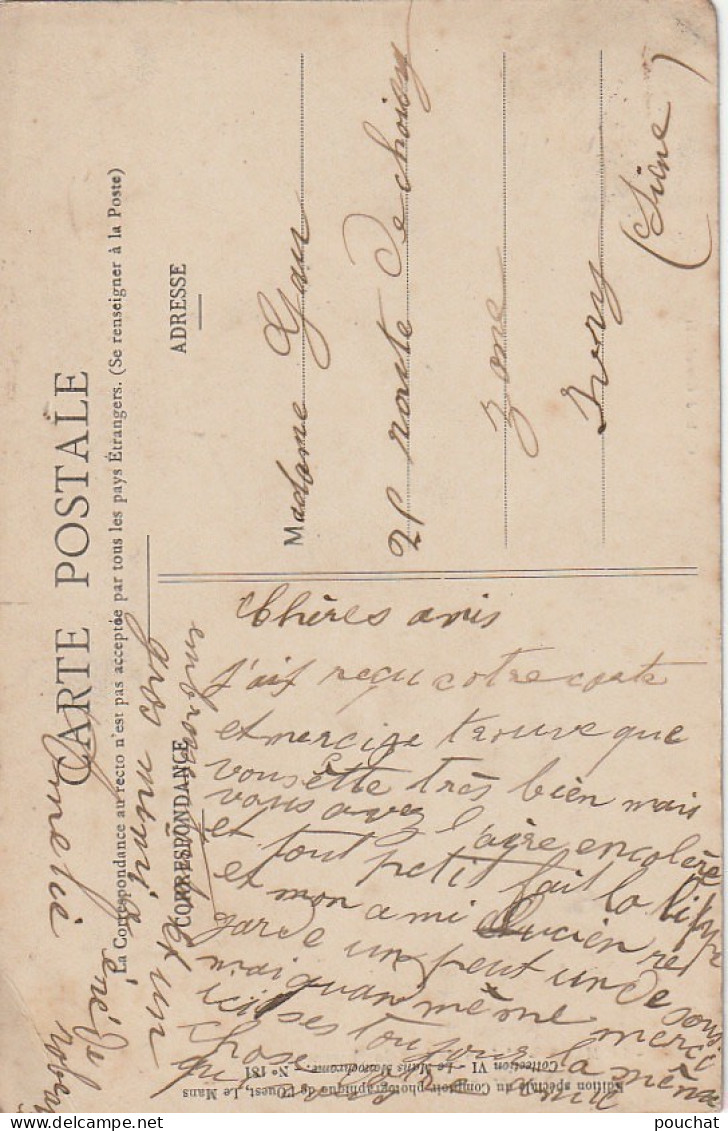 CARTE POSTALE
La Correspondance au recto n'est pas acceptée par tous les pays Étrangers. (Se renseigner à la Poste)
CORRESPONDANCE
ADRESSE
Madame
21 route de choisy
zone
Ivory
(Siene)
Chères amis
j'ait reçu votre carte
et mercije trouve que
vous ètte très bien mais
vous avez l'aire encolère
et tout petit fait la lippe
et mon ami Lucien re
garde un peut un desous
mai quan même merci
ici ses toujour la même
chose
qui
embrasse
et un
gros
Amelie
Edition spéciale du Comptoir photographique de l'Ouest, Le Mans
Collection VI - Le Mans Monochrome. - No 181
pouchat